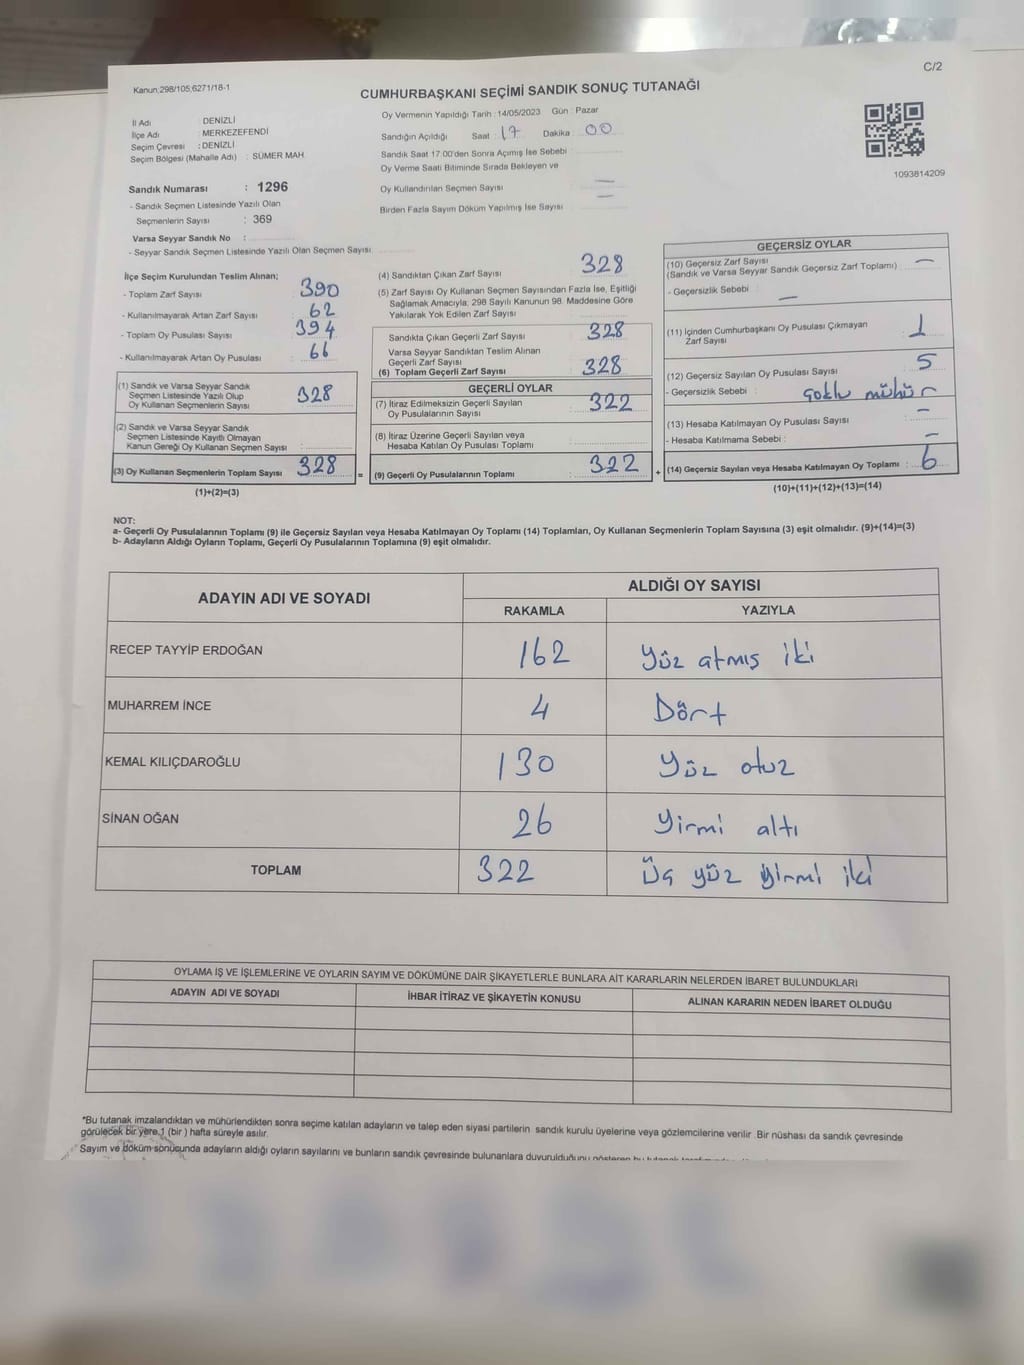 C/2
Kanun:298/105;6271/18-1
CUMHURBAŞKANI SEÇİMİ SANDIK SONUÇ TUTANAĞI
İl Adı : DENİZLİ
İlçe Adı : MERKEZEFENDİ
Seçim Çevresi : DENİZLİ
Seçim Bölgesi (Mahalle Adı) : SÜMER MAH.
Oy Vermenin Yapıldığı Tarih :14/05/2023 Gün : Pazar
Sandığın Açıldığı Saat : 17 Dakika : 00
Sandık Saat 17:00'den Sonra Açımış İse Sebebi :
Oy Verme Saati Bitiminde Sırada Bekleyen ve
Oy Kullandırılan Seçmen Sayısı : —
Birden Fazla Sayım Döküm Yapılmış İse Sayısı : —
1093814209
Sandık Numarası : 1296
- Sandık Seçmen Listesinde Yazılı Olan
Seçmenlerin Sayısı : 369
Varsa Seyyar Sandık No :
- Seyyar Sandık Seçmen Listesinde Yazılı Olan Seçmen Sayısı:
İlçe Seçim Kurulundan Teslim Alınan;
- Toplam Zarf Sayısı : 390
- Kullanılmayarak Artan Zarf Sayısı : 62
- Toplam Oy Pusulası Sayısı : 394
- Kullanılmayarak Artan Oy Pusulası : 66
(1) Sandık ve Varsa Seyyar Sandık
Seçmen Listesinde Yazılı Olup
Oy Kullanan Seçmenlerin Sayısı : 328
(2) Sandık ve Varsa Seyyar Sandık
Seçmen Listesinde Kayıtlı Olmayan
Kanun Gereği Oy Kullanan Seçmen Sayısı :
(3) Oy Kullanan Seçmenlerin Toplam Sayısı : 328
(1)+(2)=(3)
(4) Sandıktan Çıkan Zarf Sayısı : 328
(5) Zarf Sayısı Oy Kullanan Seçmen Sayısından Fazla İse, Eşitliği
Sağlamak Amacıyla, 298 Sayılı Kanunun 98. Maddesine Göre
Yakılarak Yok Edilen Zarf Sayısı :
Sandıkta Çıkan Geçerli Zarf Sayısı : 328
Varsa Seyyar Sandıktan Teslim Alınan
Geçerli Zarf Sayısı :
(6) Toplam Geçerli Zarf Sayısı : 328
GEÇERLİ OYLAR
(7) İtiraz Edilmeksizin Geçerli Sayılan
Oy Pusulalarının Sayısı : 322
(8) İtiraz Üzerine Geçerli Sayılan veya
Hesaba Katılan Oy Pusulası Toplamı :
= (9) Geçerli Oy Pusulalarının Toplamı : 322
GEÇERSİZ OYLAR
(10) Geçersiz Zarf Sayısı : —
(Sandık ve Varsa Seyyar Sandık Geçersiz Zarf Toplamı)
- Geçersizlik Sebebi : —
(11) İçinden Cumhurbaşkanı Oy Pusulası Çıkmayan
Zarf Sayısı : 1
(12) Geçersiz Sayılan Oy Pusulası Sayısı : 5
- Geçersizlik Sebebi : çoklu mühür
(13) Hesaba Katılmayan Oy Pusulası Sayısı : —
- Hesaba Katılmama Sebebi : —
+ (14) Geçersiz Sayılan veya Hesaba Katılmayan Oy Toplamı : 6
(10)+(11)+(12)+(13)=(14)
NOT:
a- Geçerli Oy Pusulalarının Toplamı (9) ile Geçersiz Sayılan veya Hesaba Katılmayan Oy Toplamı (14) Toplamları, Oy Kullanan Seçmenlerin Toplam Sayısına (3) eşit olmalıdır. (9)+(14)=(3)
b- Adayların Aldığı Oyların Toplamı, Geçerli Oy Pusulalarının Toplamına (9) eşit olmalıdır.
ADAYIN ADI VE SOYADI
ALDIĞI OY SAYISI
RAKAMLA YAZIYLA
RECEP TAYYİP ERDOĞAN 162 Yüz atmış iki
MUHARREM İNCE 4 Dört
KEMAL KILIÇDAROĞLU 130 Yüz otuz
SİNAN OĞAN 26 Yirmi altı
TOPLAM 322 Üç yüz yirmi iki
OYLAMA İŞ VE İŞLEMLERİNE VE OYLARIN SAYIM VE DÖKÜMÜNE DAİR ŞİKAYETLERLE BUNLARA AİT KARARLARIN NELERDEN İBARET BULUNDUKLARI
ADAYIN ADI VE SOYADI İHBAR İTİRAZ VE ŞİKAYETİN KONUSU ALINAN KARARIN NEDEN İBARET OLDUĞU
*Bu tutanak imzalandıktan ve mühürlendikten sonra seçime katılan adayların ve talep eden siyasi partilerin sandık kurulu üyelerine veya gözlemcilerine verilir. Bir nüshası da sandık çevresinde
görülecek bir yere 1 (bir ) hafta süreyle asılır.
Sayım ve döküm sonucunda adayların aldığı oyların sayılarını ve bunların sandık çevresinde bulunanlara duyurulduğunu gösteren bu tutanak